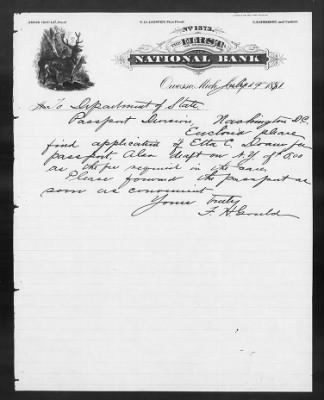 No. 1573.
THE FIRST
NATIONAL BANK
Owosso, Mich. July 29" 1881
To Department of State
Passport Division, Washington D.C.
Enclosed please
find application of Etta C. for
passport. Also draft on N.Y. of 5.00
as the fee required in the case.
Please forward the passport as
soon as convenient
Yours Truly
F. H. Gould